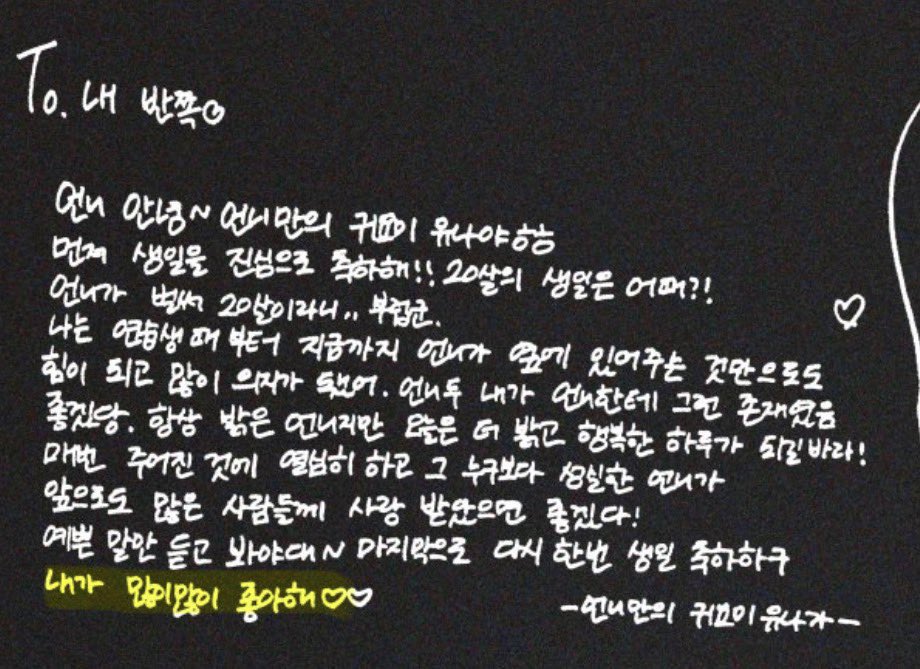 To. 내 반쪽♡
언니 안녕~ 언니만의 귀요미 유나야ㅎㅎ
먼저 생일을 진심으로 축하해!! 20살의 생일은 어때?!
언니가 벌써 20살이라니.. 부럽군.
나는 연습생때부터 지금까지 언니가 옆에 있어주는 것만으로도
힘이 되고 많이 의지가 됐어. 언니두 내가 언니한테 그런 존재였음
좋겠당. 항상 밝은 언니지만 오늘은 더 밝고 행복한 하루가 되길바라!
매번 주어진 것에 열심히 하고 그 누구보다 성실한 언니가
앞으로도 많은 사람들께 사랑 받았으면 좋겠다!
예쁜 말만 듣고 봐야대~ 마지막으로 다시 한번 생일 축하하구
내가 많이많이 좋아해♡♡
-언니만의 귀요미 유나가-